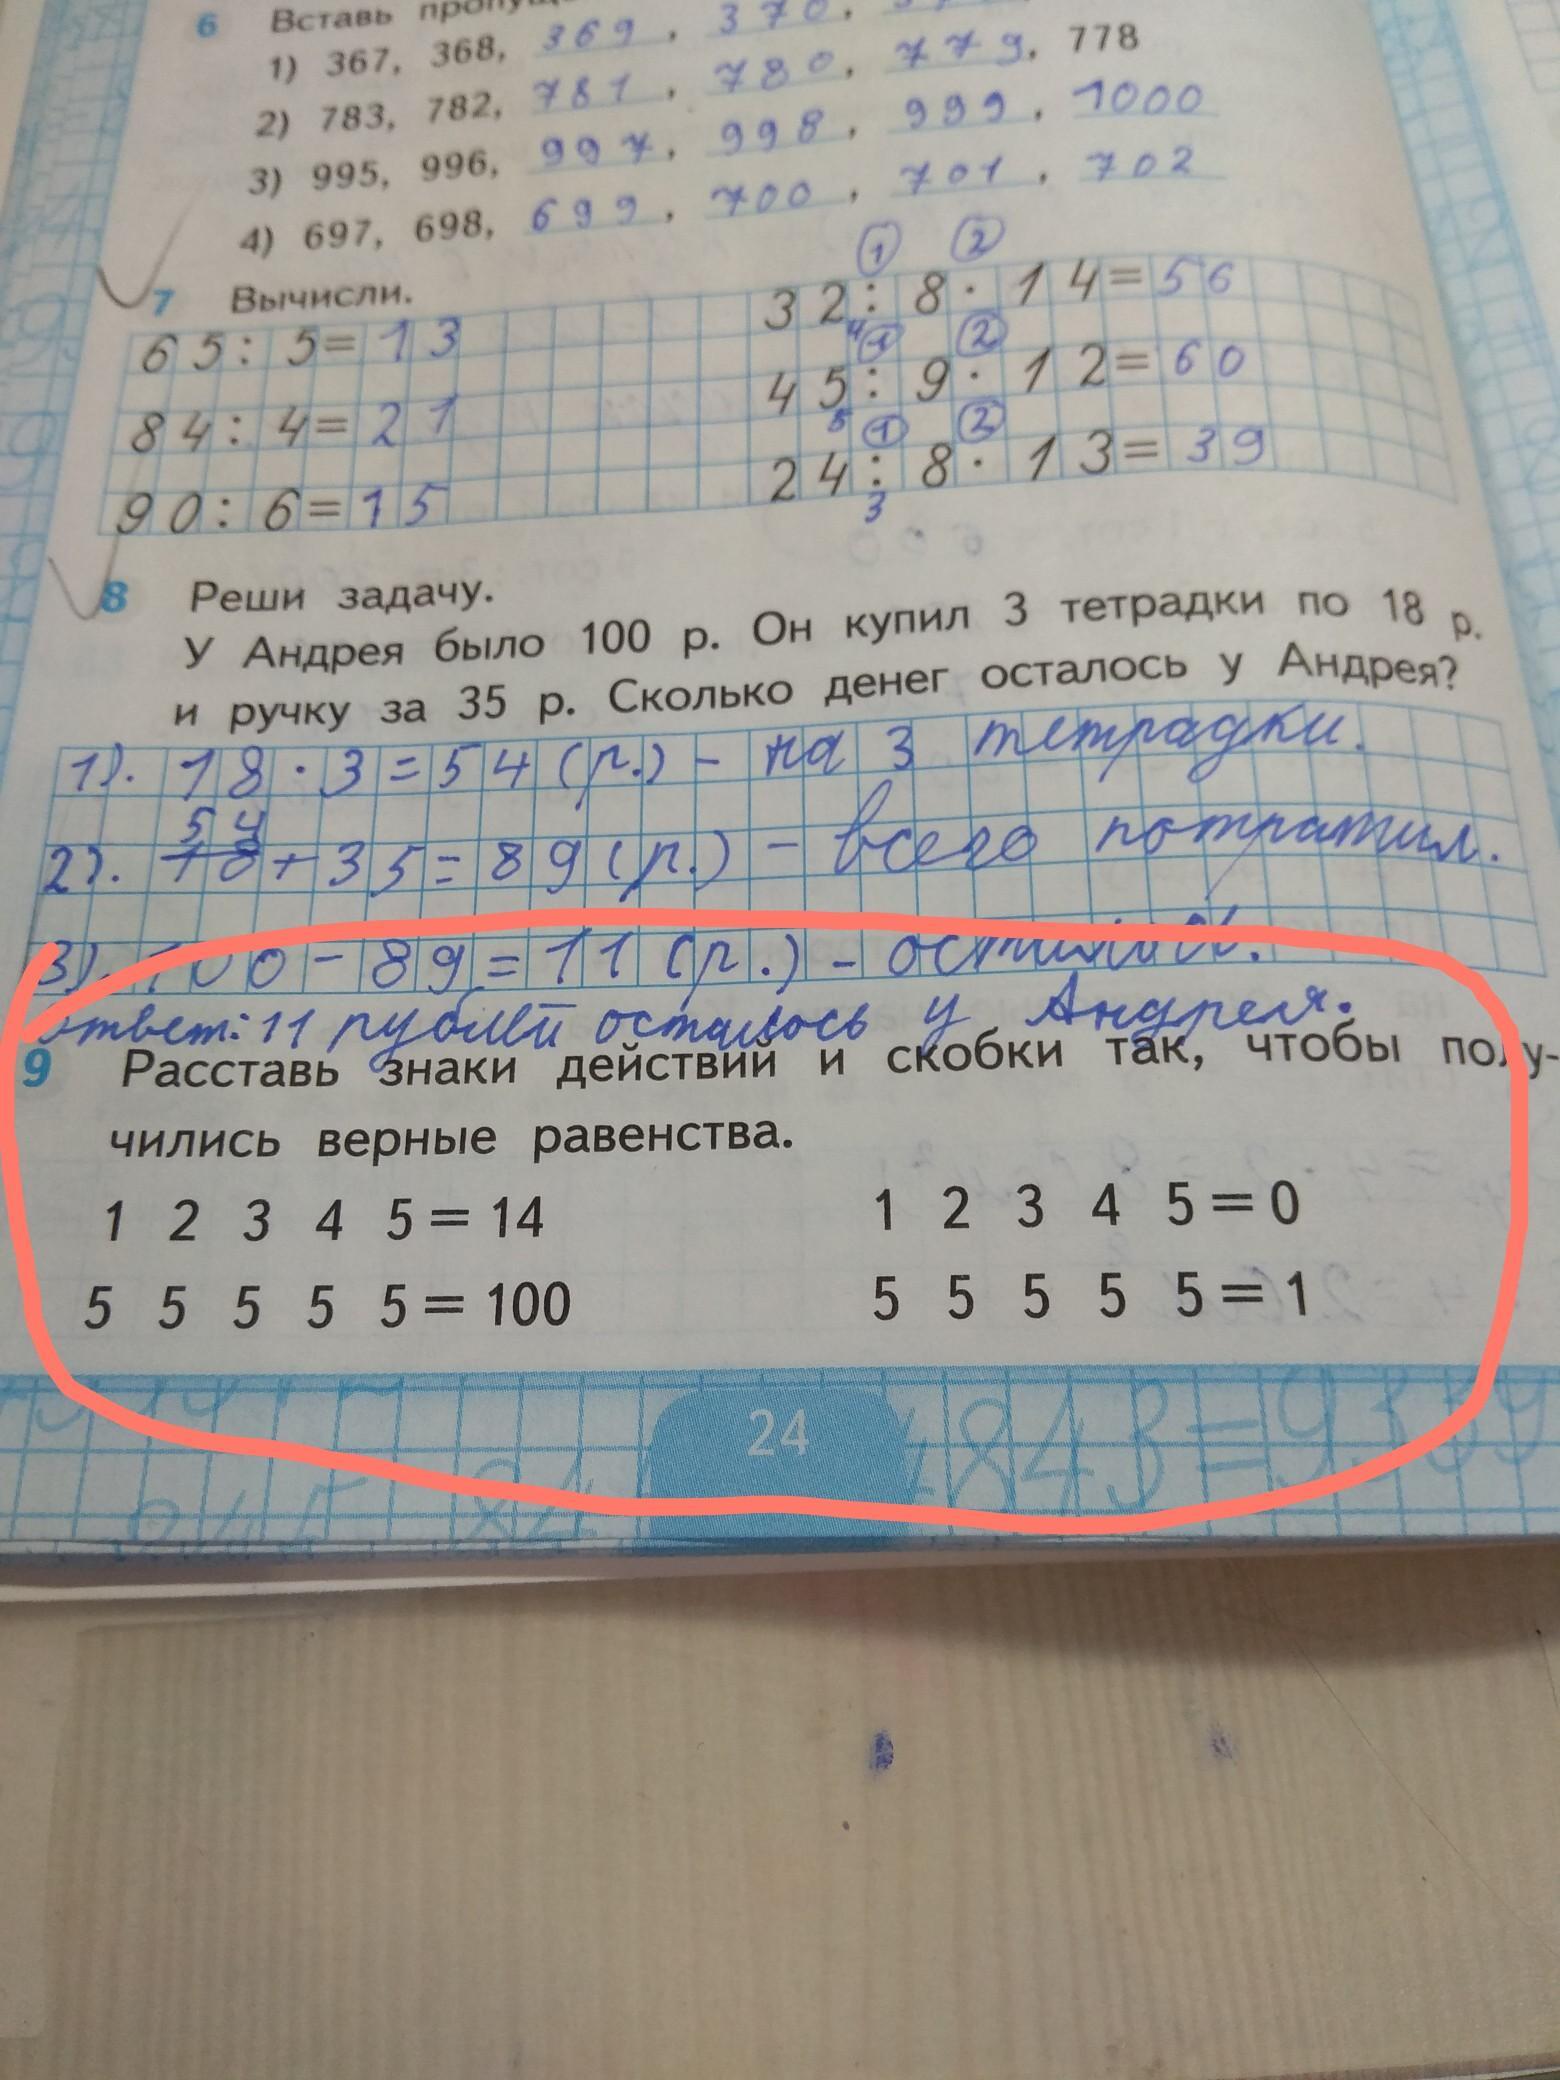 6 Вставь
1) 367, 368, 369, 370,
2) 783, 782, 781, 780, 779, 778
3) 995, 996, 997, 998, 999, 1000
4) 697, 698, 699, 700, 701, 702
7 Вычисли.
1 2
65: 5=13 32: 8· 14=56
4 1 2
84: 4=21 45: 9· 12=60
5 1 2
90: 6=15 24: 8· 13=39
3
8 Реши задачу.
У Андрея было 100 р. Он купил 3 тетрадки по 18 р.
и ручку за 35 р. Сколько денег осталось у Андрея?
1). 18·3=54(р.)- на 3 тетрадки.
54
2). 18+35=89(р.) - всего потратил.
3). 100-89=11(р.) - осталось.
Ответ: 11 рублей осталось у Андрея.
9 Расставь знаки действий и скобки так, чтобы полу-
чились верные равенства.
1 2 3 4 5=14 1 2 3 4 5=0
5 5 5 5 5=100 5 5 5 5 5=1
24
843=9339